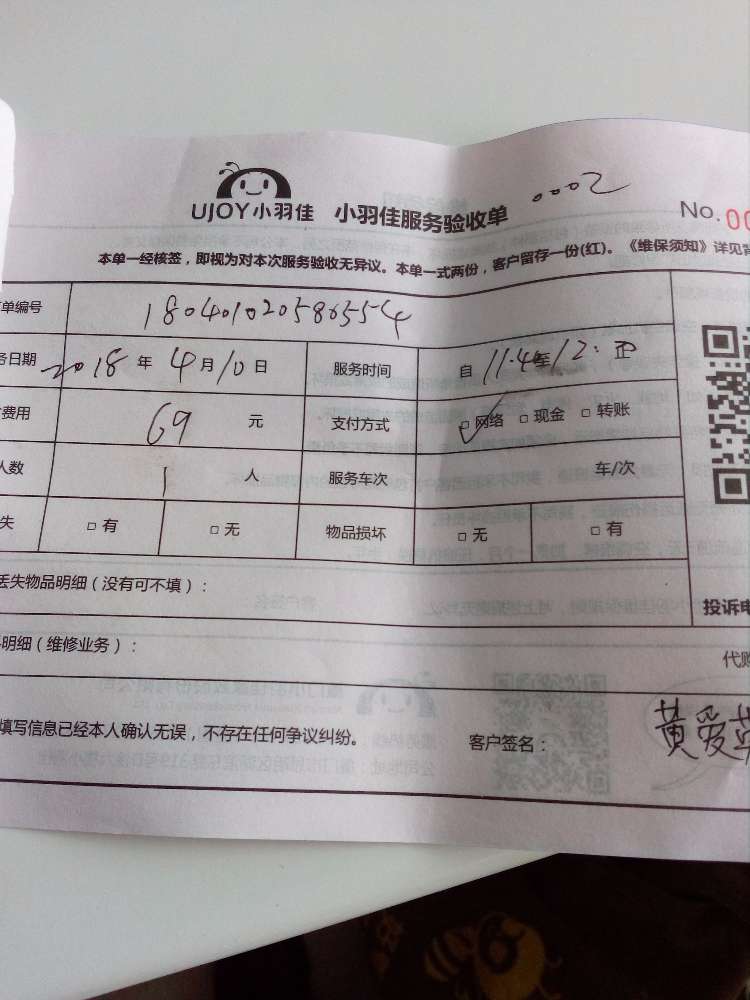 UJOY小羽佳 小羽佳服务验收单 0002 No. 00
本单一经核签，即视为对本次服务验收无异议。本单一式两份，客户留存一份(红)。《维保须知》详见背
单编号 18040102058655 4
务日期 2018 年 4 月 10 日 服务时间 自 11.40 至 12: 正
费用 69 元 支付方式 ☑ 网络 □ 现金 □ 转账
人数 1 人 服务车次 车/次
失 □ 有 □ 无 物品损坏 □ 无 □ 有
丢失物品明细（没有可不填）：
投诉电
明细（维修业务）：
代购
填写信息已经本人确认无误，不存在任何争议纠纷。 客户签名： 黄爱